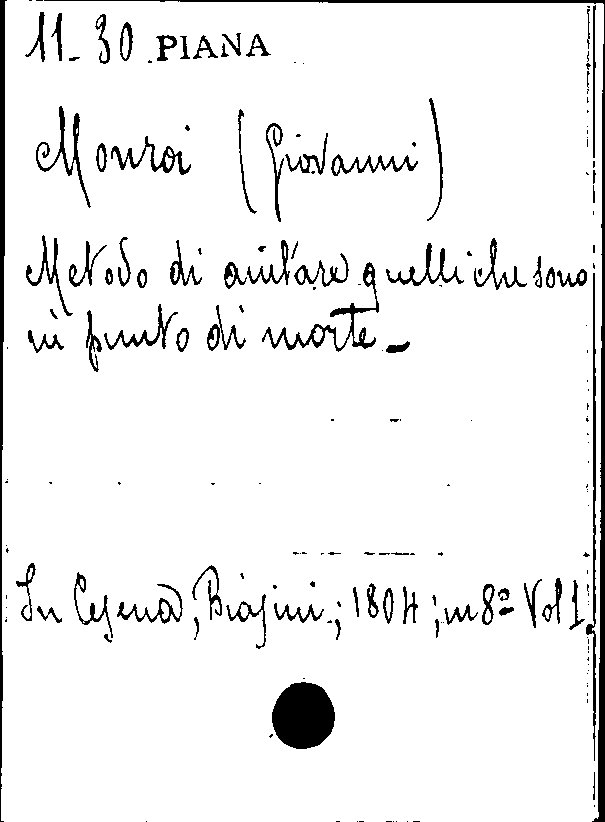 11-30 PIANA
Monroi (Giovanni)
Metodo di aiutare quelli che sono
in punto di morte -
In Cesena, Biasini; 1804; in 8º Vol 1.